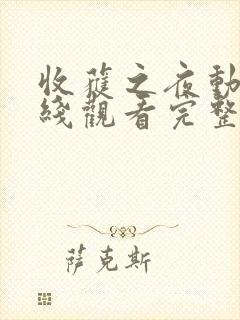 收穫之夜動
綫觀看完整
萨克斯